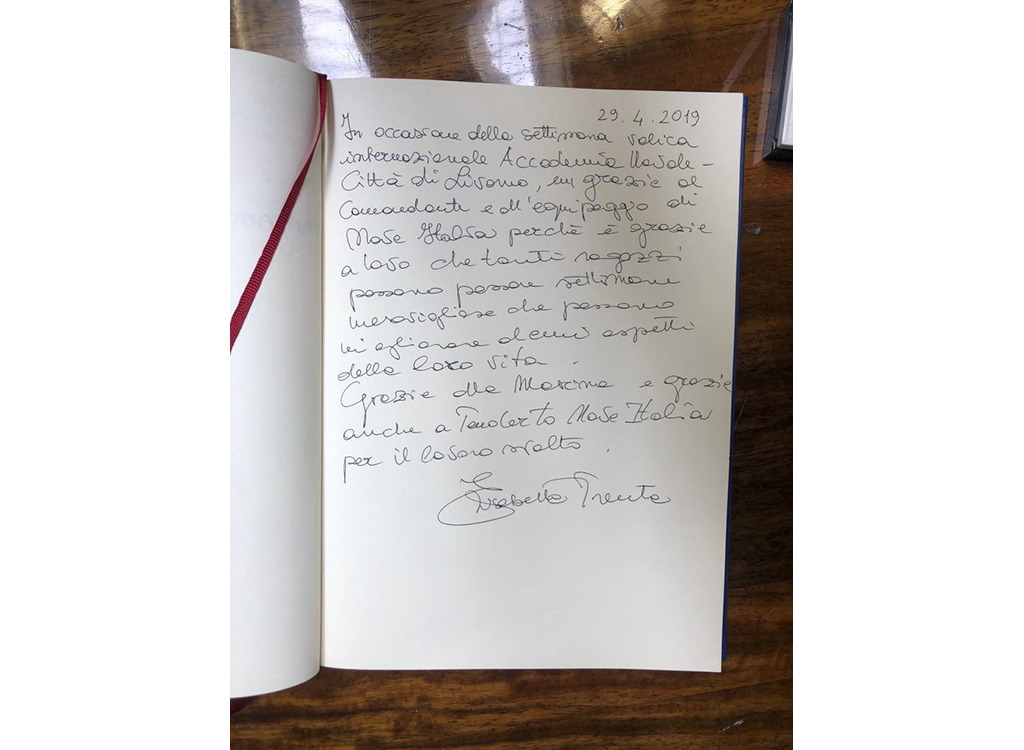 29.4.2019
In occasione della settimana velica
internazionale Accademia Navale -
Città di Livorno, un grazie al
Comandante e all'equipaggio di
Nave Italia perché è grazie
a loro che tanti ragazzi
possono passare settimane
meravigliose che possono
migliorare alcuni aspetti
della loro vita.
Grazie alla Marina e grazie
anche a Tender to Nave Italia
per il lavoro svolto.
Elisabetta Trenta